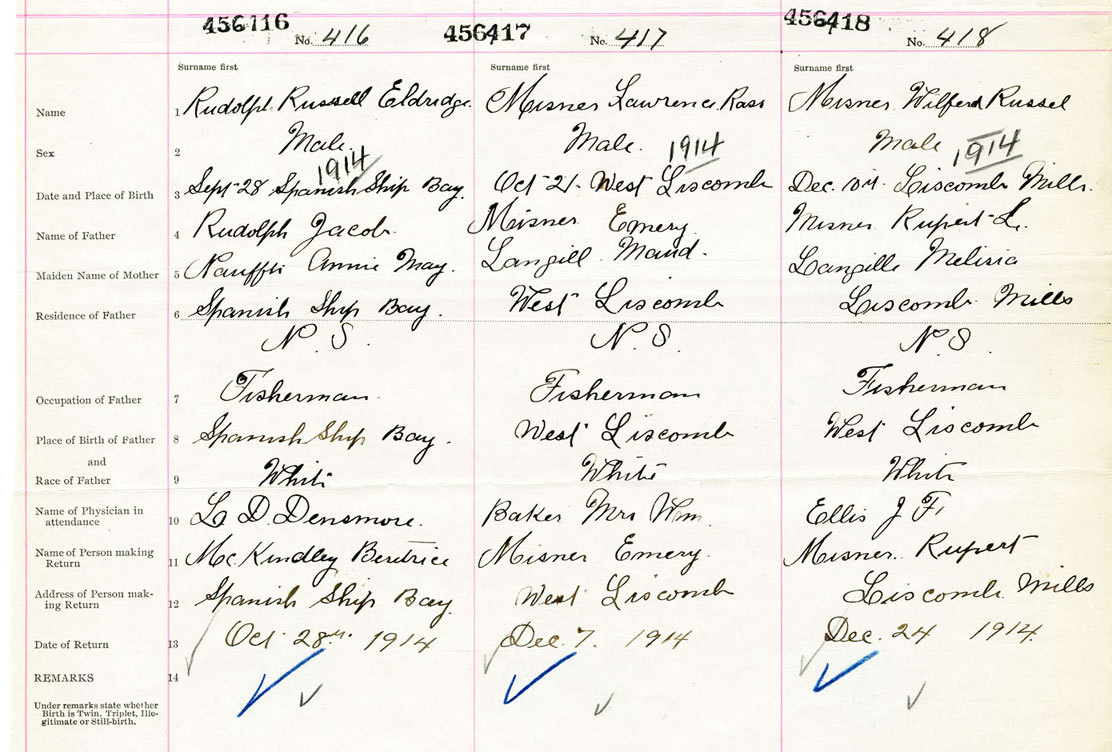 456416 No. 416 456417 No. 417 456418 No. 418
Surname first Surname first Surname first
Name 1 Rudolph Russell Eldridge Misner Lawrence Ross Misner Wilferd Russel
Sex 2 Male Male. Male
1914 1914 1914
Date and Place of Birth 3 Sept-28 Spanish Ship Bay. Oct-21- West Liscomb Dec. Liscomb Mills.
Name of Father 4 Rudolph Jacob. Misner Emery Misner Rupert L.
Maiden Name of Mother 5 Annie May. Langill Maud. Langille Melisia
Residence of Father 6 Spanish Ship Bay. West Liscomb Liscomb Mills
N. S. N. S. N. S.
Occupation of Father 7 Fisherman. Fisherman Fisherman
Place of Birth of Father 8 Spanish Ship Bay. West Liscomb West Liscomb
and
Race of Father 9 White White White
Name of Physician in
attendance 10 L D Densmore. Baker Mrs Wm. Ellis J F.
Name of Person making
Return 11 McKindley Beatrice Misner Emery. Misner. Rupert
Address of Person mak-
ing Return 12 Spanish Ship Bay. West Liscomb Liscomb. Mills
Date of Return 13 Oct 28th 1914 Dec. 7. 1914 Dec. 24 1914.
REMARKS 14
Under remarks state whether
Birth is Twin, Triplet, Ille-
gitimate or Still-birth.